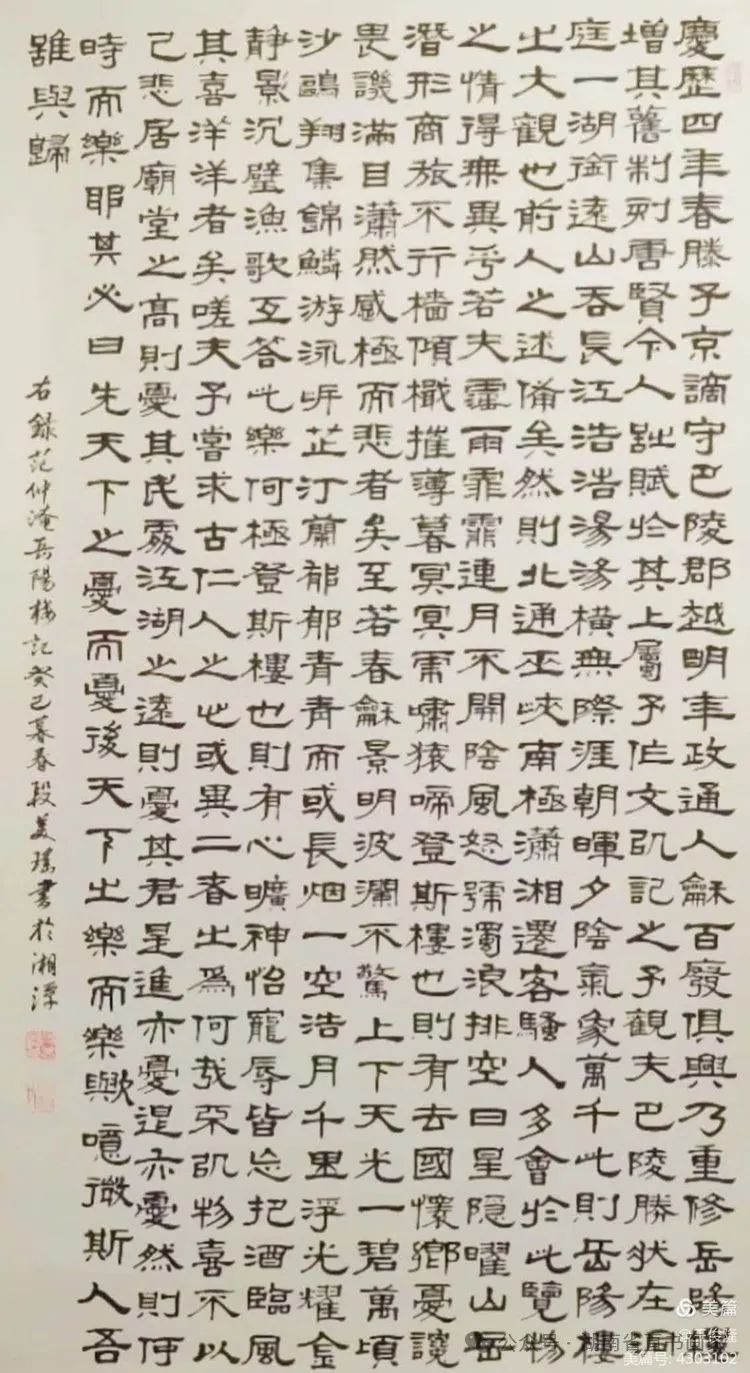 慶歷四年春滕子京謫守巴陵郡越明年政通人龢百廢俱興乃重修岳陽
增其舊制刻唐賢今人詩賦於其上屬予作文以記之予觀夫巴陵勝狀在洞
庭一湖銜遠山吞長江浩浩湯湯橫無際涯朝暉夕陰氣象萬千此則岳陽樓
之大觀也前人之述備矣然則北通巫峽南極瀟湘遷客騷人多會於此覽物
之情得無異乎若夫霪雨霏霏連月不開陰風怒號濁浪排空日星隱曜山岳
潛形商旅不行檣傾檝摧薄暮冥冥虎嘯猿啼登斯樓也則有去國懷鄉憂讒
畏譏滿目瀟然感極而悲者矣至若春龢景明波瀾不驚上下天光一碧萬頃
沙鷗翔集錦鱗游泳岸芷汀蘭郁郁青青而或長烟一空浩月千里浮光耀金
静影沉璧漁歌互答此樂何極登斯樓也則有心曠神怡寵辱皆忘把酒臨風
其喜洋洋者矣嗟夫予嘗求古仁人之心或異二者之為何哉不以物喜不以
己悲居廟堂之高則憂其民處江湖之遠則憂其君是進亦憂退亦憂然則何
時而樂耶其必曰先天下之憂而憂後天下之樂而樂歟噫微斯人吾
誰與歸
右錄范仲淹岳陽樓記癸巳暮春段美瑤書於湘潭
美篇
公众号·湖南省直书画
美篇号: 4303102